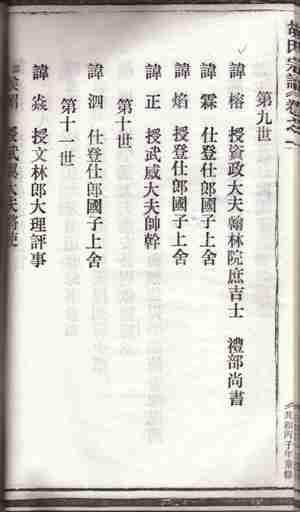 胡氏宗譜 卷之一
共和丙子年重修
第九世
諱榕 授資政大夫翰林院庶吉士 禮部尚書
諱霖 仕登仕郎國子上舍
諱焰 授登仕郎國子上舍
諱正 授武威大夫帥幹
第十世
諱泗 仕登仕郎國子上舍
第十一世
諱焱 授文林郎大理評事
授武 大夫